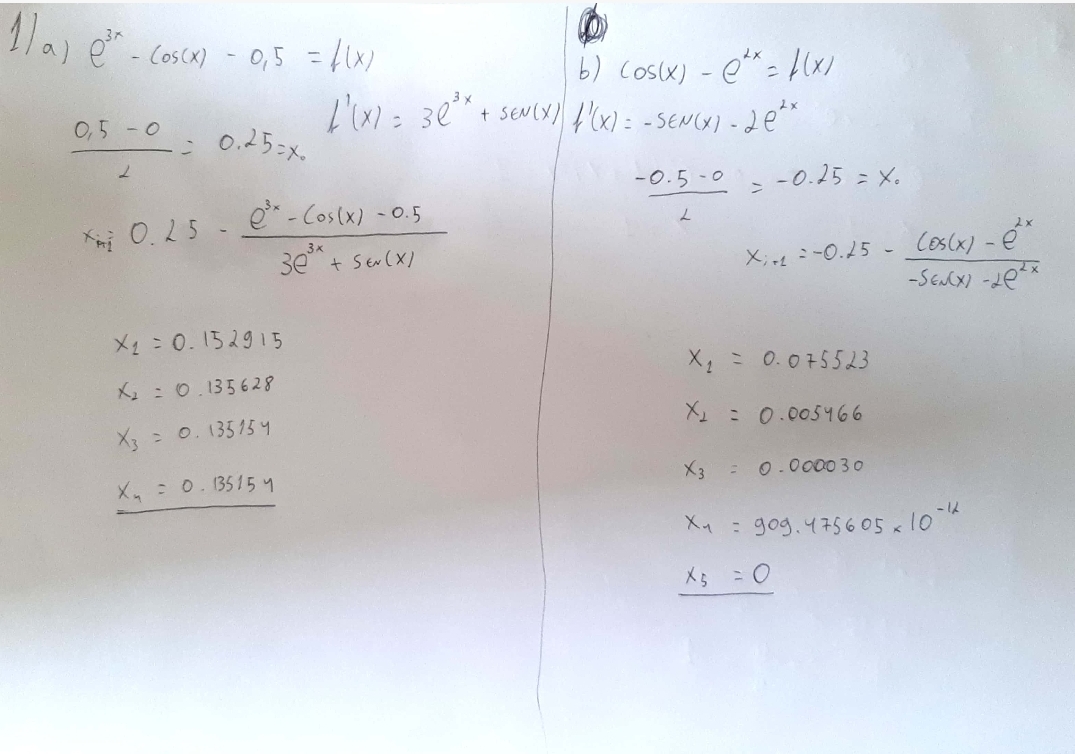 1) a) e^3x - Cos(x) - 0,5 = f(x)
f'(x) = 3e^3x + SEN(x)
0,5 - 0 / 2 = 0.25 = x₀
= 0.25 - e^3x - Cos(x) - 0.5 / 3e^3x + SEN(x)
x₁ = 0.152915
x₂ = 0.135628
x₃ = 0.135154
x₄ = 0.135154
b) Cos(x) - e^2x = f(x)
f'(x) = -SEN(x) - 2e^2x
-0.5 - 0 / 2 = -0.25 = x₀
xᵢ₊₁ = -0.25 - Cos(x) - e^2x / -SEN(x) - 2e^2x
x₁ = 0.075523
x₂ = 0.005466
x₃ = 0.000030
x₄ = 909.475605 × 10^-12
x₅ = 0